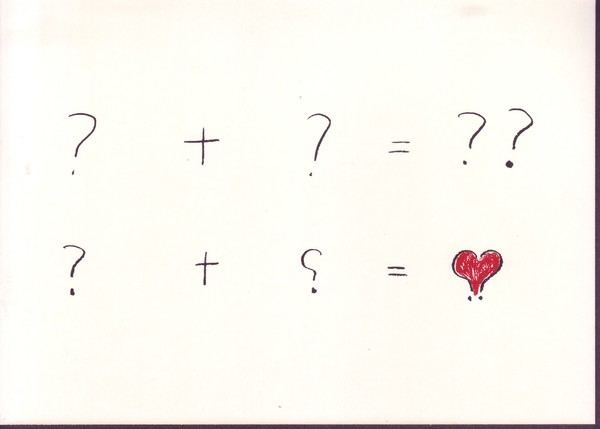 ? + ? = ??
? + ⸮ = ♥